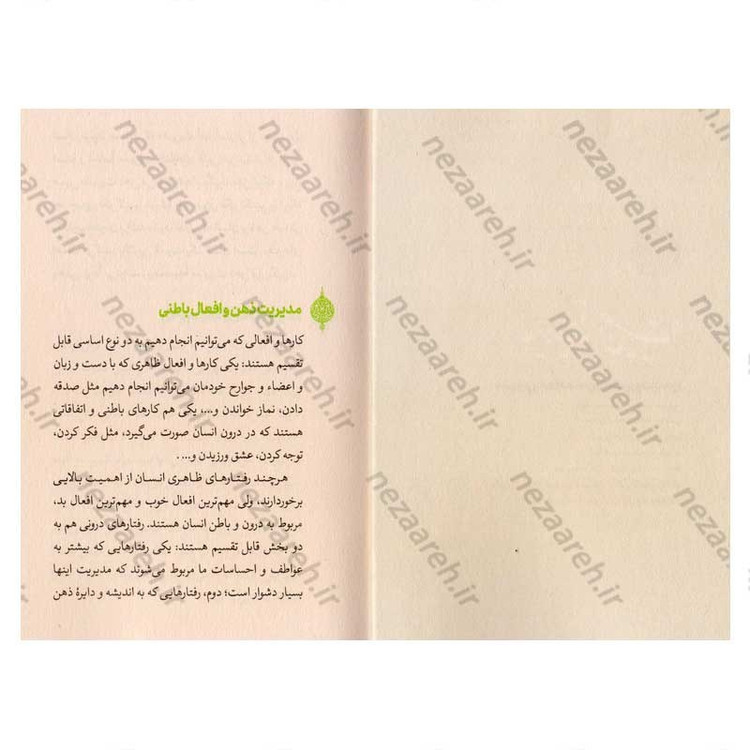 مدیریت ذهن و افعال باطنی
کارها و افعالی که می‌توانیم انجام دهیم به دو نوع اساسی قابل
تقسیم هستند: یکی کارها و افعال ظاهری که با دست و زبان
و اعضاء و جوارح خودمان می‌توانیم انجام دهیم مثل صدقه
دادن، نماز خواندن و...، یکی هم کارهای باطنی و اتفاقاتی
هستند که در درون انسان صورت می‌گیرد، مثل فکر کردن،
توجه کردن، عشق ورزیدن و... .
هرچند رفتارهای ظاهری انسان از اهمیت بالایی
برخوردارند، ولی مهم‌ترین افعال خوب و مهم‌ترین افعال بد،
مربوط به درون و باطن انسان هستند. رفتارهای درونی هم به
دو بخش قابل تقسیم هستند: یکی رفتارهایی که بیشتر به
عواطف و احساسات ما مربوط می‌شوند که مدیریت اینها
بسیار دشوار است؛ دوم، رفتارهایی که به اندیشه و دایرهٔ ذهن
nezaareh.ir
nezaareh.ir
nezaareh.ir
nezaareh.ir
nezaareh.ir
nezaareh.ir
nezaareh.ir
nezaareh.ir
nezaareh.ir
nezaareh.ir
nezaareh.ir
nezaareh.ir
nezaareh.ir
nezaareh.ir